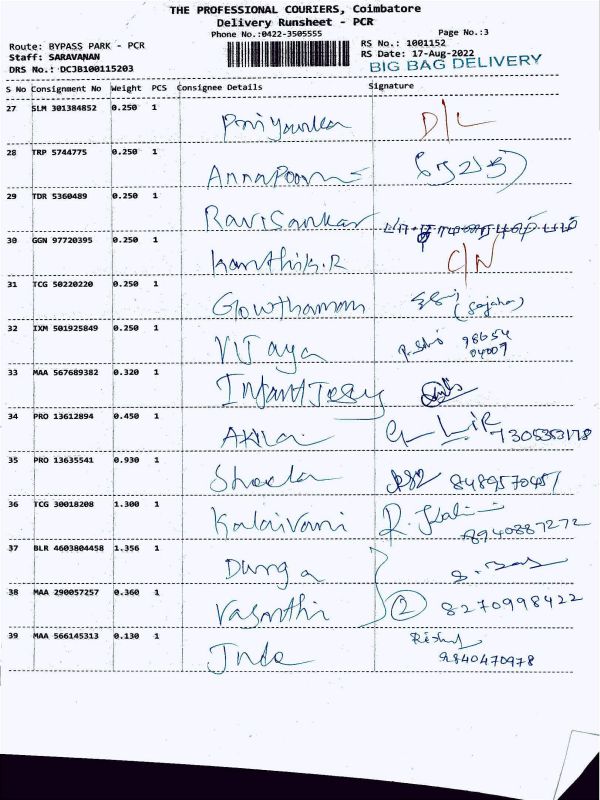 THE PROFESSIONAL COURIERS, Coimbatore
Delivery Runsheet - PCR
Phone No.:0422-3505555
Page No.:3
Route: BYPASS PARK - PCR
RS No.: 1001152
Staff: SARAVANAN
RS Date: 17-Aug-2022
DRS No.: DCJB100115203
BIG BAG DELIVERY
S No Consignment No Weight PCS Consignee Details Signature
27 SLM 301384852 0.250 1 Priyanka D/L
28 TRP 5744775 0.250 1
29 TDR 5360489 0.250 1 RaviSankar
30 GGN 97720395 0.250 1 Karthik.R C/N
31 TCG 50220220 0.250 1 Gowthaman
32 IXM 501925849 0.250 1 Vijaya 98654
04007
33 MAA 567689382 0.320 1 Infant Jesy
34 PRO 13612894 0.450 1 7305353178
35 PRO 13635541 0.930 1 Sheela 8489570457
36 TCG 30018208 1.300 1 Kalaivani
8940887272
37 BLR 4603804458 1.356 1 Durga
38 MAA 290057257 0.360 1 Vasnthi 2 8270998422
39 MAA 566145313 0.130 1
9840470978